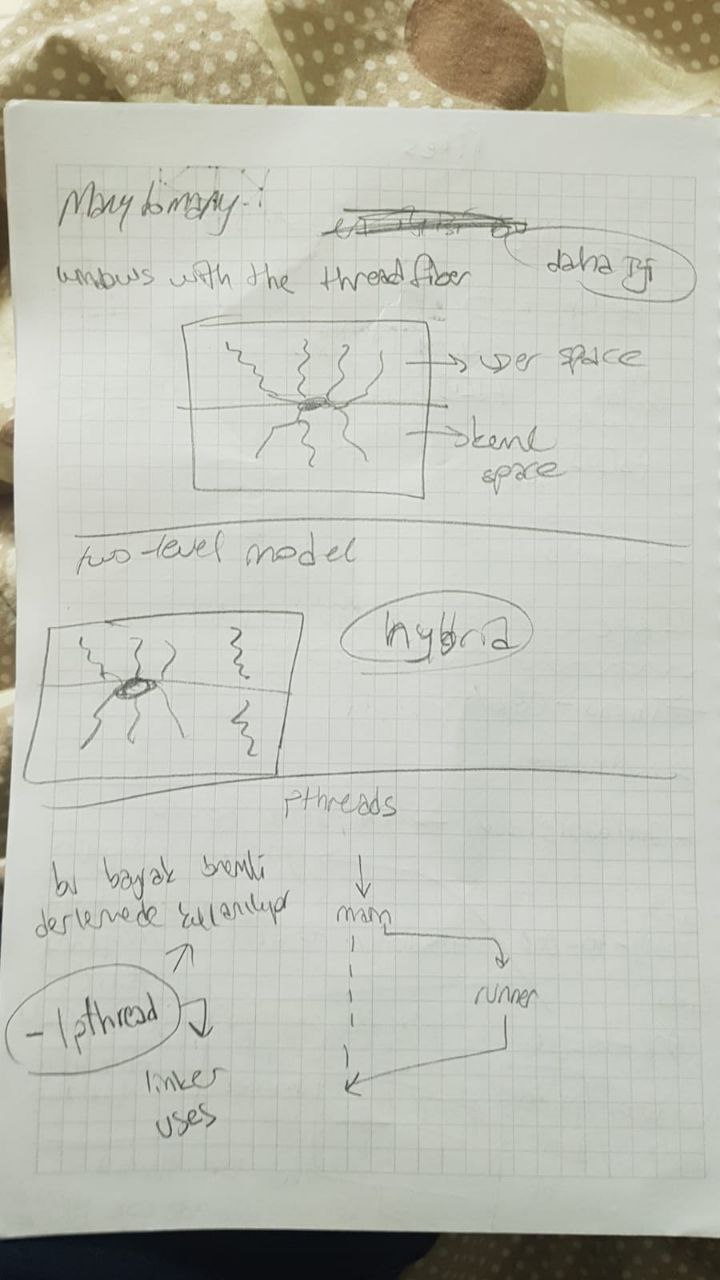 Many to many :
windows with the thread fiber
daha iyi
user space
kernel
space
two-level model
hybrid
pthreads
bu bayak önemli
derlemede kullanılıyor
main
runner
-lpthread
linker
uses